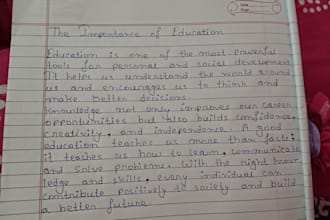 The Importance of Education
Education is one of the most powerful
tools for personal and social development
It helps us understand the world around
us and encourages us to think and
make better decisions
Knowledge not only improves our career
opportunities but also builds confidence,
creativity, and independence. A good
education teaches us more than facts;
it teaches us how to learn, communicate
and solve problems. With the right know
ledge and skills, every individual can
contribute positively to society and build
a better future